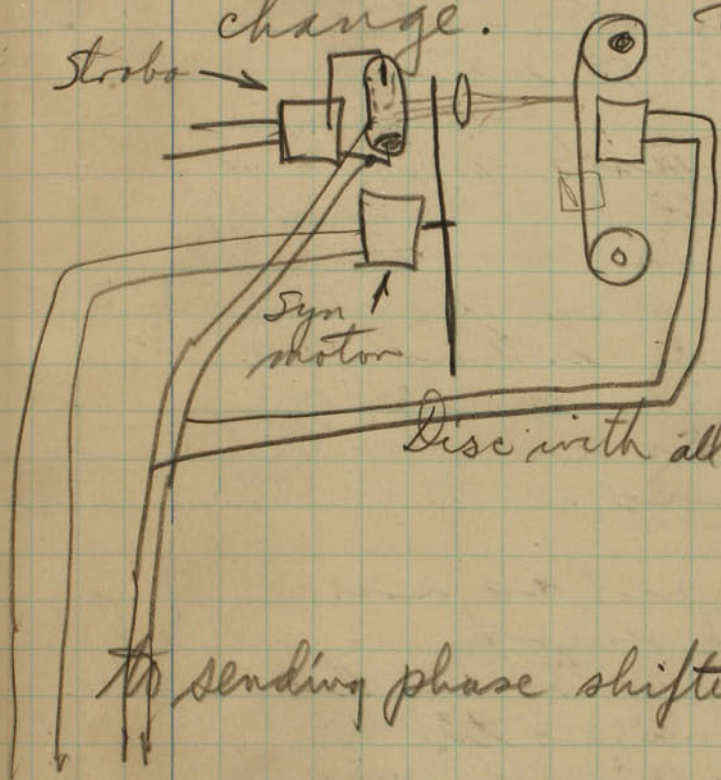 change.
Strobo
Syn
motor
Disc with all
to sending phase shifte